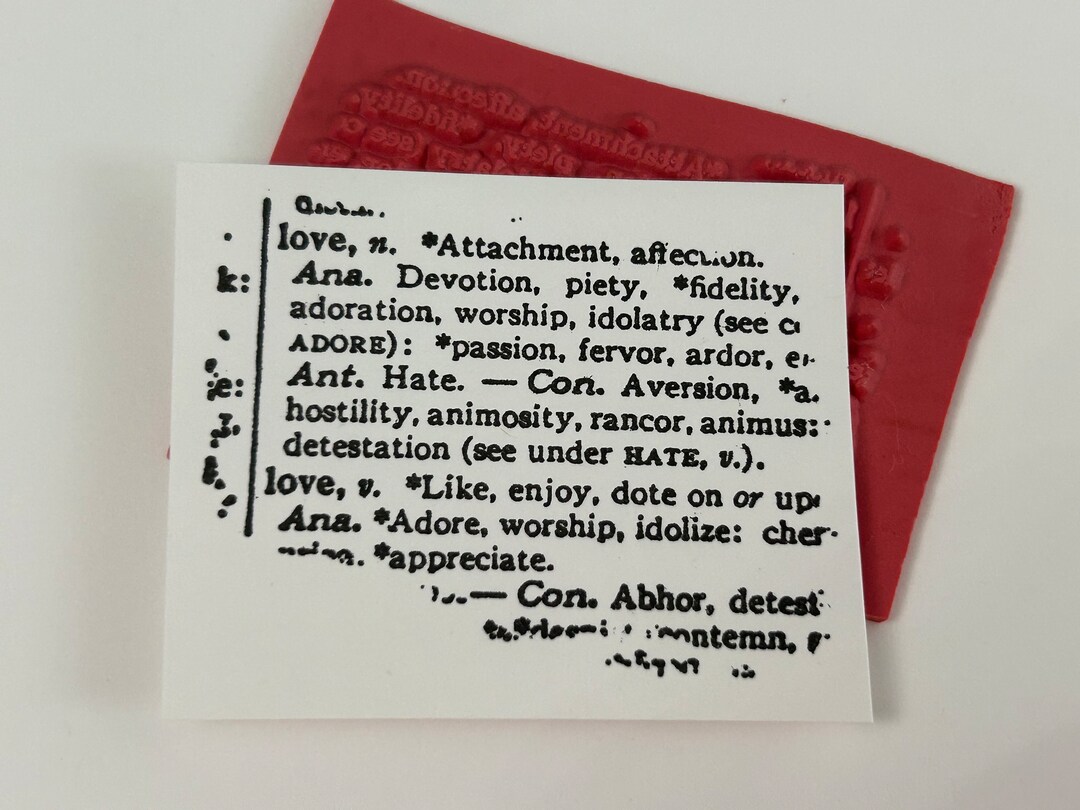 love, n. *Attachment,
k: Ana. Devotion, piety, *fidelity,
adoration, worship, idolatry (see
ADORE): *passion, fervor, ardor,
e: Ant. Hate. — Con. Aversion,
hostility, animosity, rancor, animus:
detestation (see under HATE, v.).
love, v. *Like, enjoy, dote on or
Ana. *Adore, worship, idolize:
*appreciate.
— Con. Abhor, detest